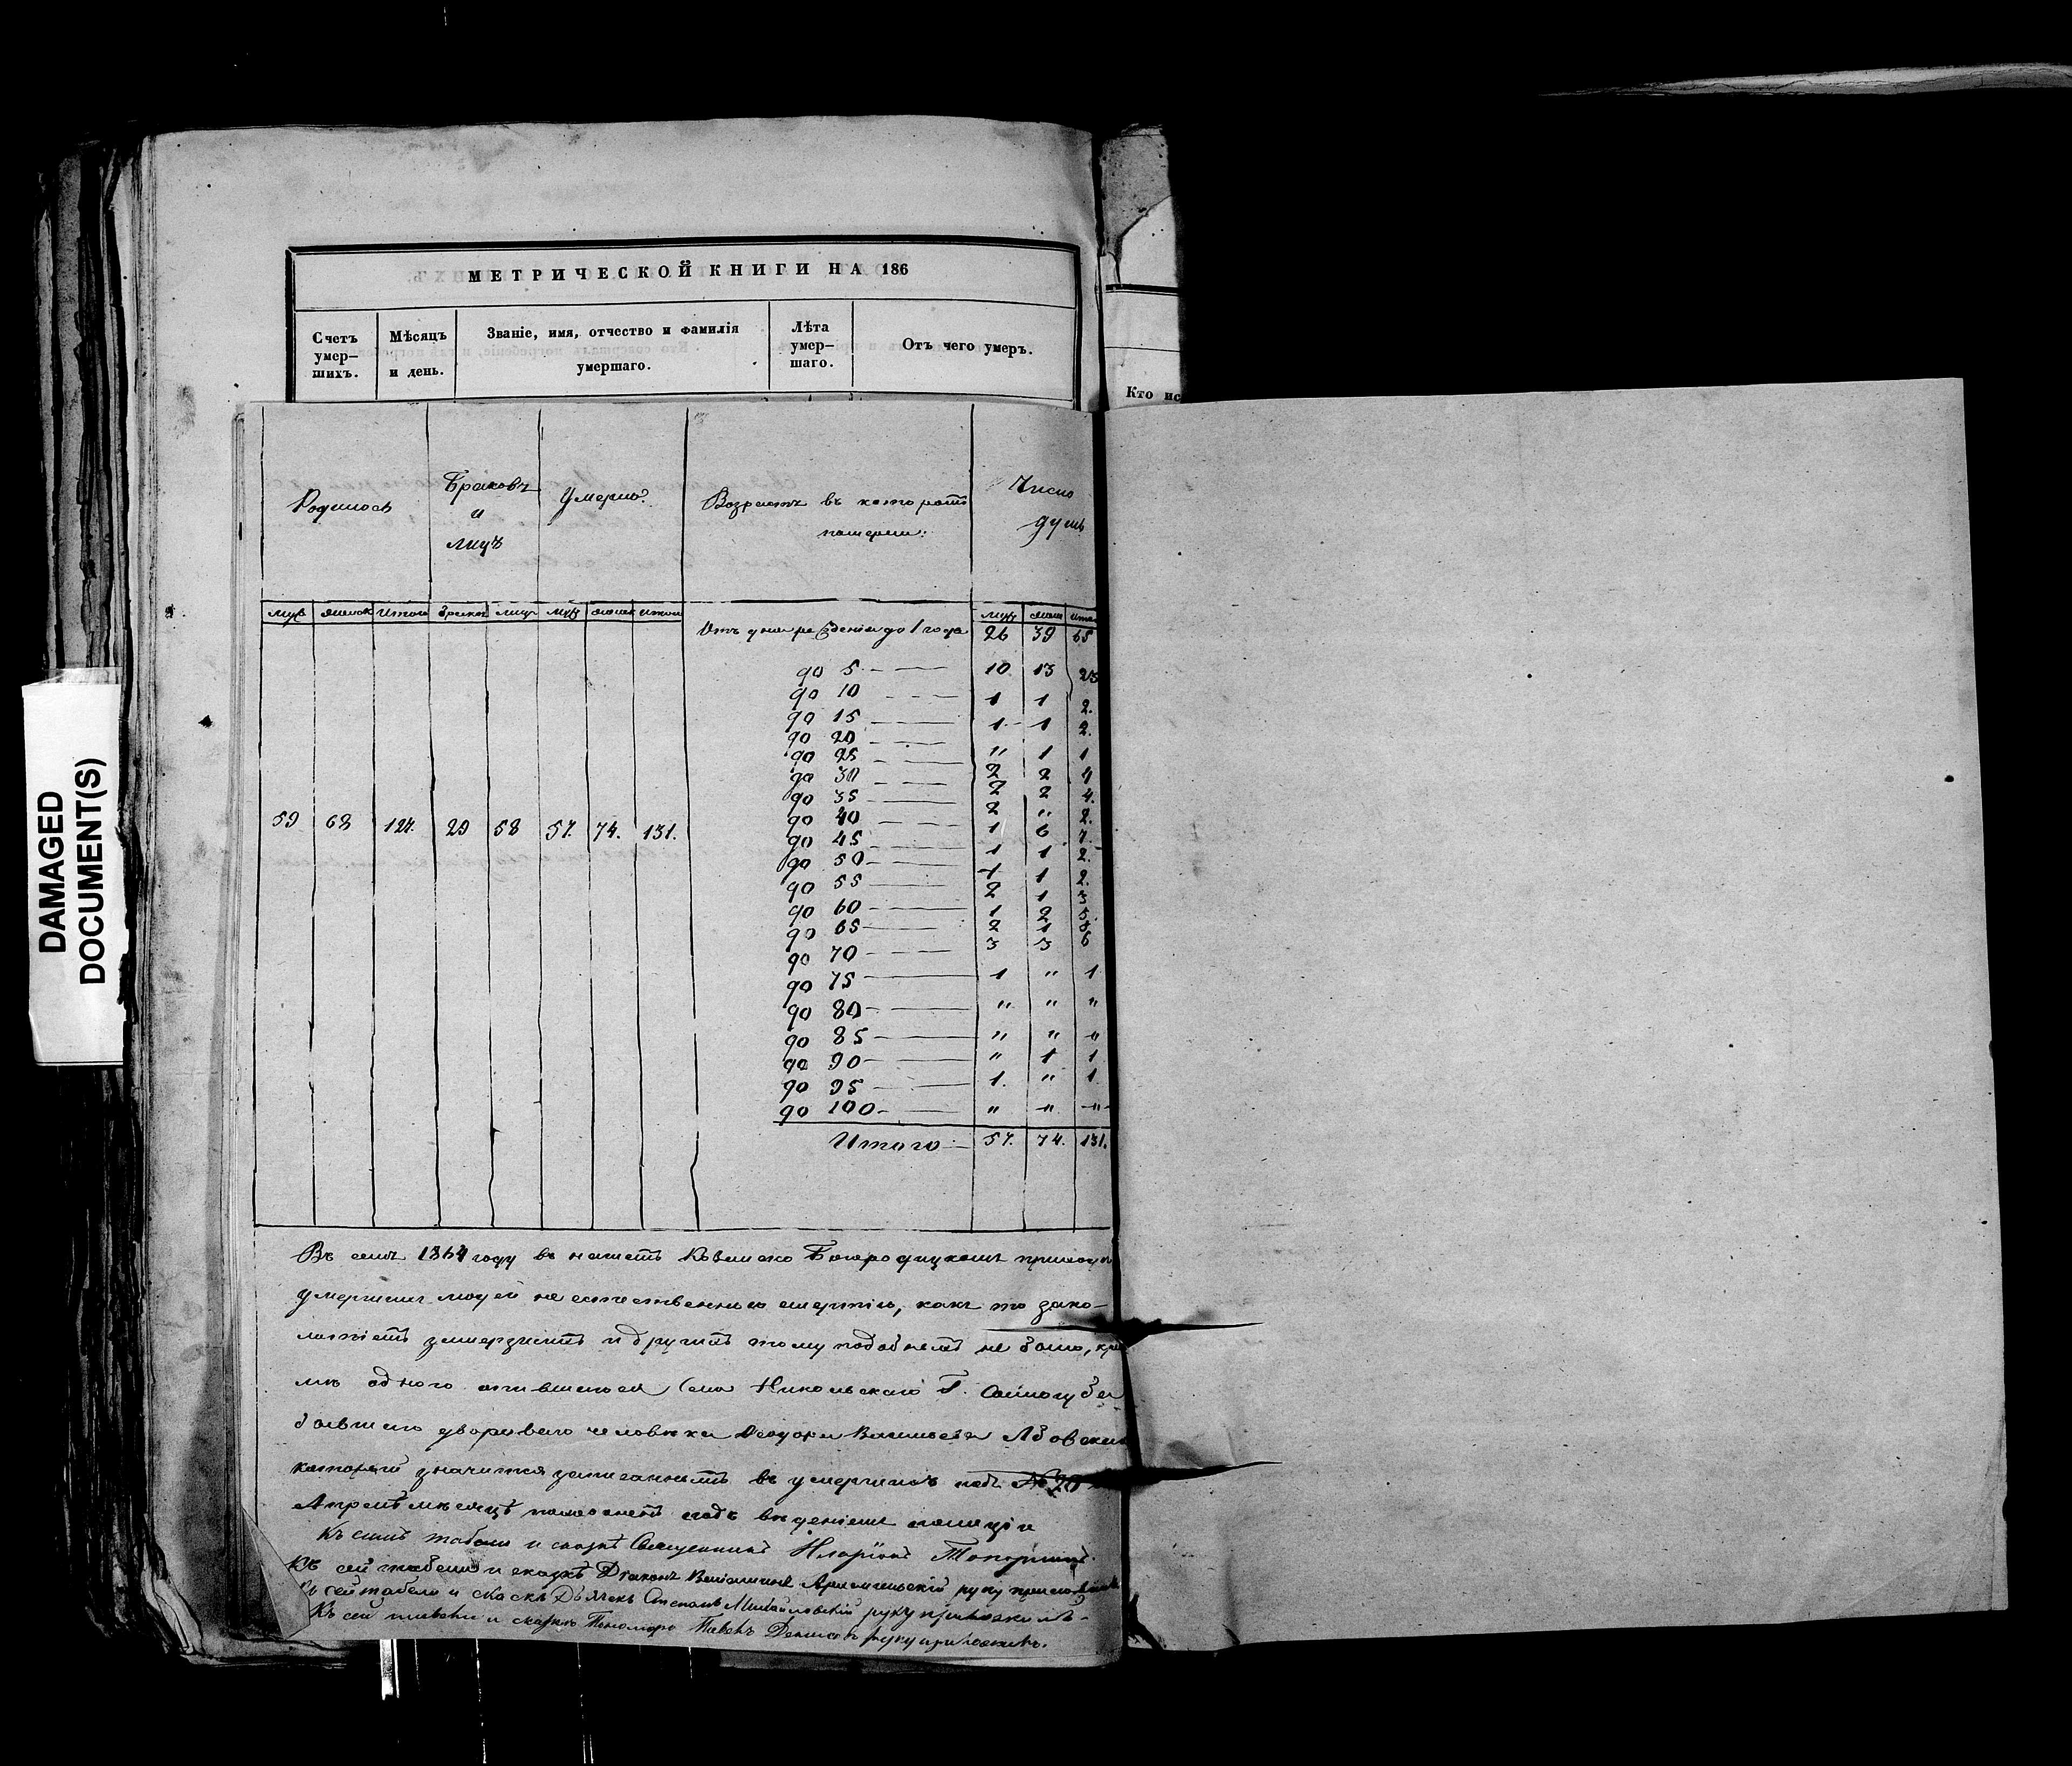 МЕТРИЧЕСКОЙ КНИГИ НА 186
Счетъ умер–шихъ.
Мѣсяцъ и день.
Званіе, имя, отчество и фамилія умершаго.
Лѣта умер–шаго.
Отъ чего умеръ.
Кто ис
Родилось
Браковъ и лицъ
Умерло
Возрастъ въ которомъ померли:
Число душъ
муж женск Итого браков лицъ муж женск Итого
муж жен Ито
Отъ дня рожденія до 1 года 26 39 65
до 5 10 13 23
до 10 1 1 2.
до 15 1 1 2.
до 20 " 1 1
до 25 2 2 4
до 30 2 2 4.
до 35 2 " 2.
до 40 1 6 7.
до 45 1 1 2.
до 50 1 1 2.
до 55 2 1 3
до 60 1 2
до 65 2 1
до 70 3 3 6
до 75 1 " 1
до 80 " " "
до 85 " " "
до 90 " 1 1
до 95 1. " 1.
до 100 " " "
59 68 127. 29 58 57. 74. 131.
Итого 57. 74. 131.
Въ семъ 1864 году въ нашемъ Богородицкомъ приходѣ
умершихъ людей не естественною смертію, какъ то
и другихъ тому подобнымъ не было, кро
мѣ одного опившагося села Никольскаго Г.
бывшаго двороваго человѣка Ѳеодора Васильева
который значится записаннымъ въ умершихъ подъ № 20
Апрѣлѣ мѣсяцѣ подъ вѣденіемъ полиціи
Къ сей табели и сказкѣ Священникъ Иларіонъ Топорнинъ
Къ сей табели и сказкѣ Діаконъ Веніаминъ руку приложилъ
Къ сей табели и сказкѣ Дьячекъ Степанъ Михайловскій руку приложилъ
Къ сей табели и сказкѣ Пономарь Павелъ Денисовъ руку приложилъ.
DAMAGED
DOCUMENT(S)